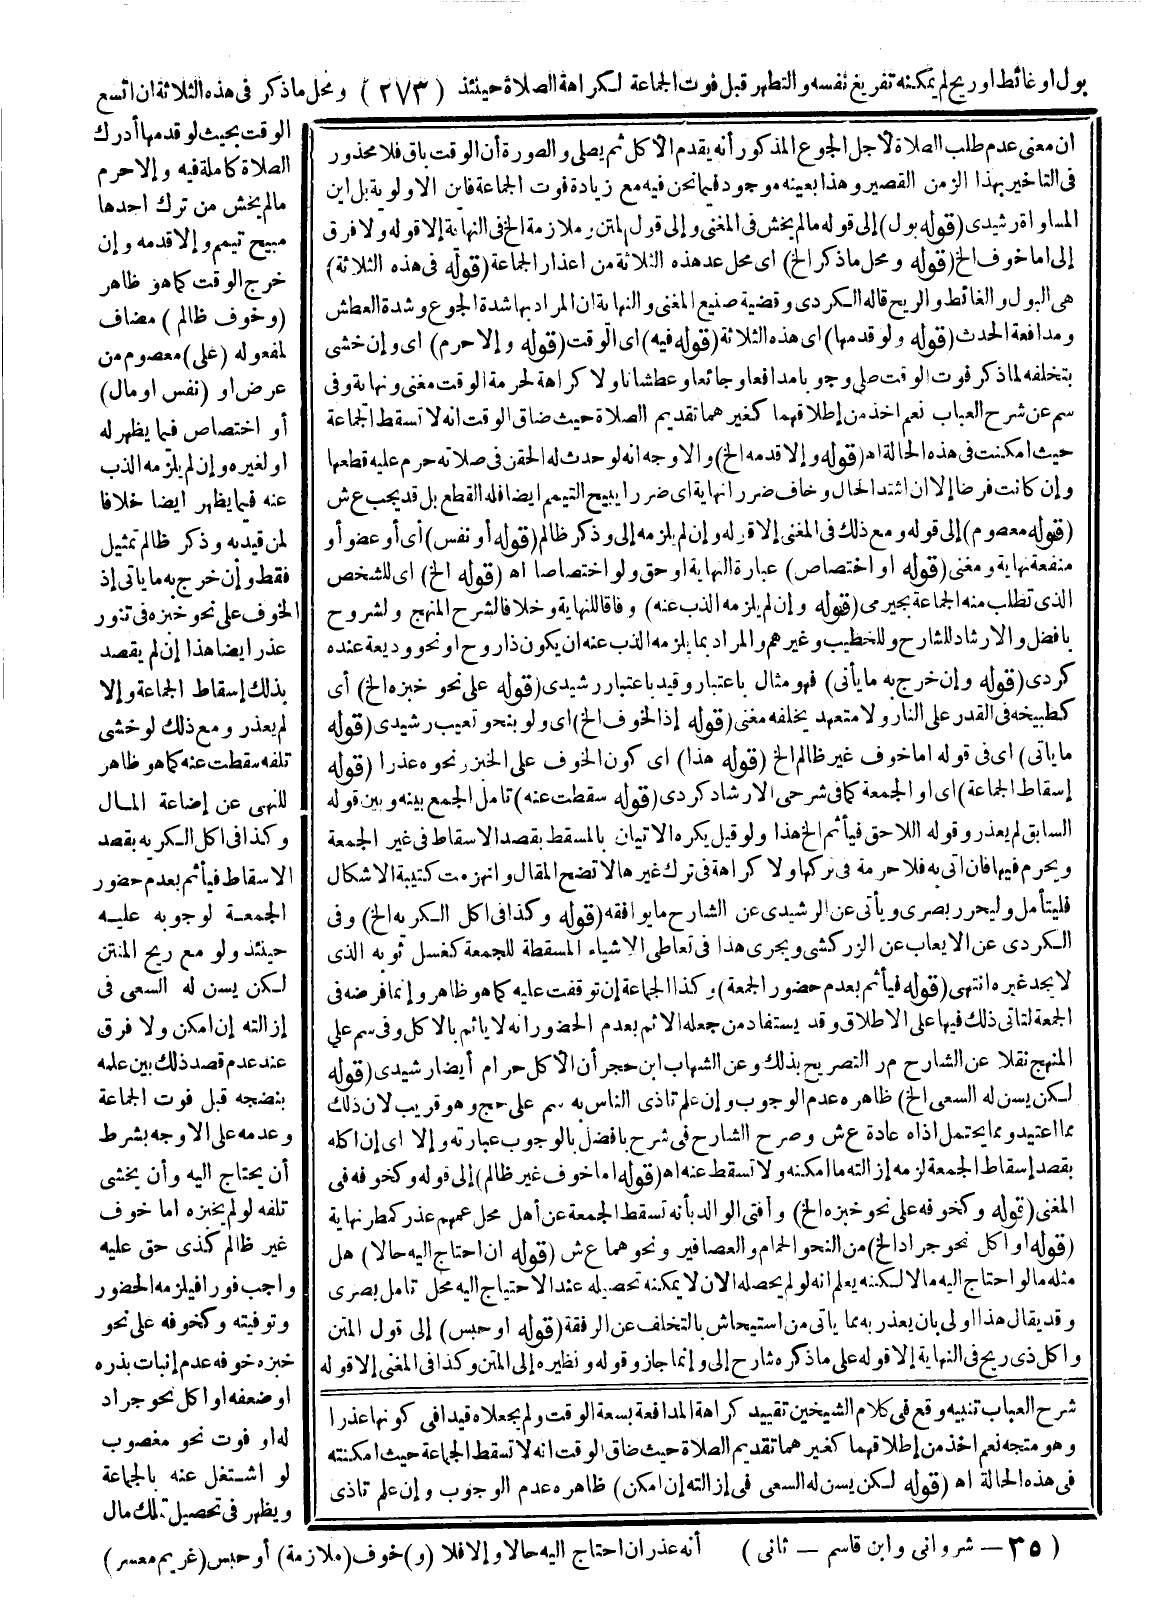 بول او غائط اوريح لم يمكنه تفريغ نفسه والتطهر قبل فوت الجماعة لكراهة الصلاة حينئذ (٢٧٣) ومحل ما ذكر فى هذه الثلاثة ان اتسع
الوقت بحيث لو قدمها أدرك
الصلاة كاملة فيه وإلا حرم
مالم يخش من ترك احدها
مبيح تيمم وإلا قدمه وإن
خرج الوقت كما هو ظاهر
(وخوف ظالم) مضاف
لمفعوله (على) معصوم من
عرض او (نفس او مال)
أو اختصاص فيما يظهر له
او لغيره وإن لم يلزمه الذب
عنه فيما يظهر ايضا خلافا
لمن قيد به وذكر ظالم تمثيل
فقط وأن خرج به ما ياتى إذ
الخوف على نحو خبزه فى تنور
عذر ايضا هذا إن لم يقصد
بذلك إسقاط الجماعة وإلا
لم يعذر ومع ذلك لو خشى
تلفه سقطت عنه كما هو ظاهر
للنهى عن إضاعة المال
وكذا فى اكل الكريه بقصد
الاسقاط فيأثم بعدم حضور
الجمعة لوجوبه عليه
حينئذ ولو مع ريح المنتن
لكن يسن له السعى فى
إزالته إن امكن ولا فرق
عند عدم قصد ذلك بين علمه
بنضجه قبل فوت الجماعة
وعدمه على الاوجه بشرط
أن يحتاج اليه وأن يخشى
تلفه لو لم يخبزه اما خوف
غير ظالم كذى حق عليه
واجب فورا فيلزمه الحضور
وتوفيته وكخوفه على نحو
خبزه خوفه عدم إنبات بذره
او ضعفه او اكل نحو جراد
له او فوت نحو مغصوب
لو اشتغل عنه بالجماعة
ويظهر فى تحصيل تملك مال
ان معنى عدم طلب الصلاة لاجل الجوع المذكور أنه يقدم الاكل ثم يصلى والصورة أن الوقت باق فلا محذور
فى التاخير بهذا الزمن القصير وهذا بعينه موجود فيما نحن فيه مع زيادة فوت الجماعة فاين الاولوية بل اين
المساواة رشيدى (قوله بول) إلى قوله مالم يخش فى المغنى وإلى قول المتن وملازمة الخ فى النهاية إلا قوله ولا فرق
إلى اما خوف الخ (قوله ومحل ما ذكر الخ) اى محل عد هذه الثلاثة من اعذار الجماعة (قوله فى هذه الثلاثة)
هى البول والغائط والريح قاله الكردى وقضية صنيع المغنى والنهاية ان المراد بها شدة الجوع وشدة العطش
ومدافعة الحدث (قوله ولو قدمها) اى هذه الثلاثة (قوله فيه) اى الوقت (قوله وإلا حرم) اى وإن خشى
بتخلفه لما ذكر فوت الوقت صلى وجوبا مدافعا وجائعا وعطشانا ولا كراهة لحرمة الوقت مغنى ونهاية وفى
سم عن شرح العباب نعم اخذ من إطلاقهما كغيرهما تقديم الصلاة حيث ضاق الوقت انه لا تسقط الجماعة
حيث امكنت فى هذه الحالة اه (قوله وإلا قدمه الخ) والاوجه انه لو حدث له الحقن فى صلاته حرم عليه قطعها
وإن كانت فرضا إلا ان اشتد الحال وخاف ضررا نهاية اى ضررا يبيح التيمم ايضا فله القطع بل قد يجب ع ش
(قوله معصوم) إلى قوله ومع ذلك فى المغنى إلا قوله وإن لم يلزمه إلى وذكر ظالم (قوله أو نفس) أى أو عضو أو
منفعة نهاية ومغنى (قوله او اختصاص) عبارة النهاية او حق ولو اختصاصا اه (قوله الخ) اى للشخص
الذى تطلب منه الجماعة بجيرمى (قوله وإن لم يلزمه الذب عنه) وفاقا للنهاية وخلافا لشرح المنهج ولشروح
بافضل والارشاد للشارح وللخطيب وغيرهم والمراد بما يلزمه الذب عنه ان يكون ذا روح او نحو وديعة عنده
كردى (قوله وإن خرج به ما يأتى) فهو مثال باعتبار وقيد باعتبار رشيدى (قوله على نحو خبزه الخ) أى
كطبيخه فى القدر على النار ولا متعهد يخلفه مغنى (قوله إذ الخوف الخ) اى ولو بنحو تعيب رشيدى (قوله
ما ياتى) اى فى قوله اما خوف غير ظالم الخ (قوله هذا) اى كون الخوف على الخبز نحوه عذرا (قوله
إسقاط الجماعة) اى او الجمعة كما فى شرحى الارشاد كردى (قوله سقطت عنه) تامل الجمع بينه وبين قوله
السابق لم يعذر وقوله اللاحق فيأثم الخ هذا ولو قيل يكره الاتيان بالمسقط بقصد الاسقاط فى غير الجمعة
ويحرم فيها فان اتى به فلا حرمة فى تركها ولا كراهة فى ترك غيرها لاتضح المقال وانهزمت كتيبة الاشكال
فليتأمل وليحرر بصرى ويأتى عن الرشيدى عن الشارح ما يوافقه (قوله وكذا فى اكل الكريه الخ) وفى
الكردى عن الايعاب عن الزركشى ويجرى هذا فى تعاطى الاشياء المسقطة للجمعة كغسل ثوبه الذى
لا يجد غيره انتهى (قوله فيأثم بعدم حضور الجمعة) وكذا الجماعة إن توقفت عليه كما هو ظاهر وإنما فرضه فى
الجمعة لتاتى ذلك فيها على الاطلاق وقد يستفاد من جعله الاثم بعدم الحضور انه لا ياثم بالاكل وفى سم على
المنهج نقلا عن الشارح مر التصريح بذلك وعن الشهاب ابن حجر أن الاكل حرام أيضا رشيدى (قوله
لكن يسن له السعى الخ) ظاهره عدم الوجوب وإن علم تاذى الناس به سم على حج وهو قريب لان ذلك
مما اعتيد ومما يحتمل اذاه عادة ع ش وصرح الشارح فى شرح بافضل بالوجوب عبارته وإلا اى إن اكله
بقصد إسقاط الجمعة لزمه إزالته ما امكنه ولا تسقط عنه اه (قوله اما خوف غير ظالم) إلى قوله وكخوفه فى
المغنى (قوله وكخوفه على نحو خبزه الخ) وأفتى الوالد بأنه تسقط الجمعة عن أهل محل عمهم عذر كمطر نهاية
(قوله او اكل نحو جراد الخ) من النحو الحمام والعصافير ونحوهما ع ش (قوله ان احتاج اليه حالا) هل
مثله مالو احتاج اليه مالا لكنه يعلم انه لو لم يحصله الان لا يمكنه تحصيله عند الاحتياج اليه محل تامل بصرى
وقد يقال هذا اولى بان يعذر به مما ياتى من استيحاش بالتخلف عن الرفقة (قوله او حبس) إلى قول المتن
واكل ذى ريح فى النهاية إلا قوله على ما ذكره شارح إلى وإنما جاز وقوله ونظيره إلى المتن وكذا فى المغنى إلا قوله
شرح العباب تنبيه وقع فى كلام الشيخين تقييد كراهة المدافعة بسعة الوقت ولم يجعلاه قيدا فى كونها عذرا
وهو متجه نعم اخذ من إطلاقهما كغيرهما تقديم الصلاة حيث ضاق الوقت انه لا تسقط الجماعة حيث امكنته
فى هذه الحالة اه (قوله لكن يسن له السعى فى إزالته إن امكن) ظاهره عدم الوجوب وإن علم تاذى
(٣٥ – شروانى وابن قاسم – ثانى) أنه عذر ان احتاج اليه حالا وإلا فلا (و) خوف (ملازمة) أو حبس (غريم معسر)